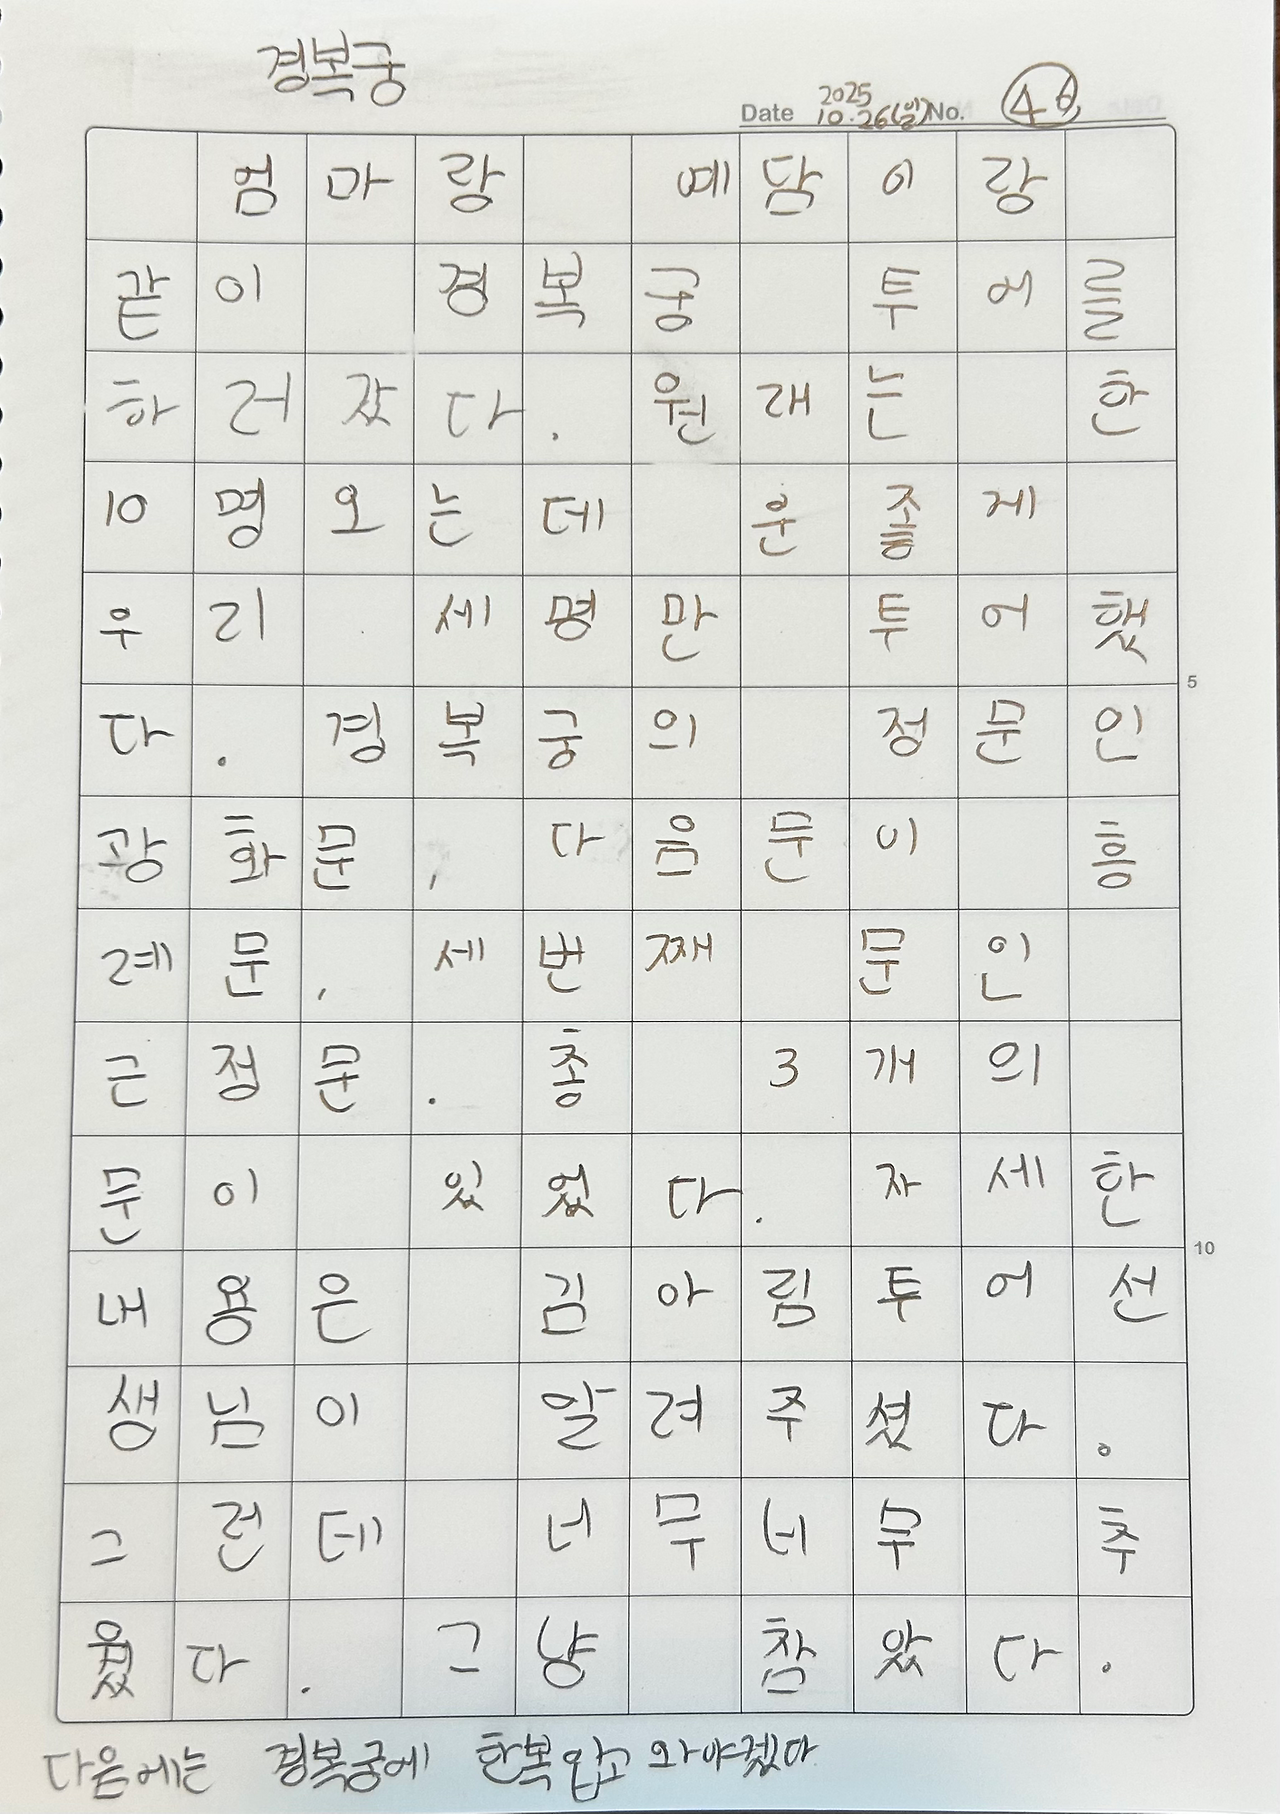 경복궁
Date 2025 10.26(일) No.
엄마랑 예담이랑
같이 경복궁 투어를
하러갔다. 원래는 한
10명오는데 운좋게
우리 세명만 투어했
다. 경복궁의 정문인
광화문, 다음문이 흥
례문, 세번째 문인
근정문. 총 3개의
문이 있었다. 자세한
내용은 김아림투어선
생님이 알려주셨다.
그런데 너무너무 추
웠다. 그냥 참았다.
다음에는 경복궁에 한복입고 와야겠다
5
10